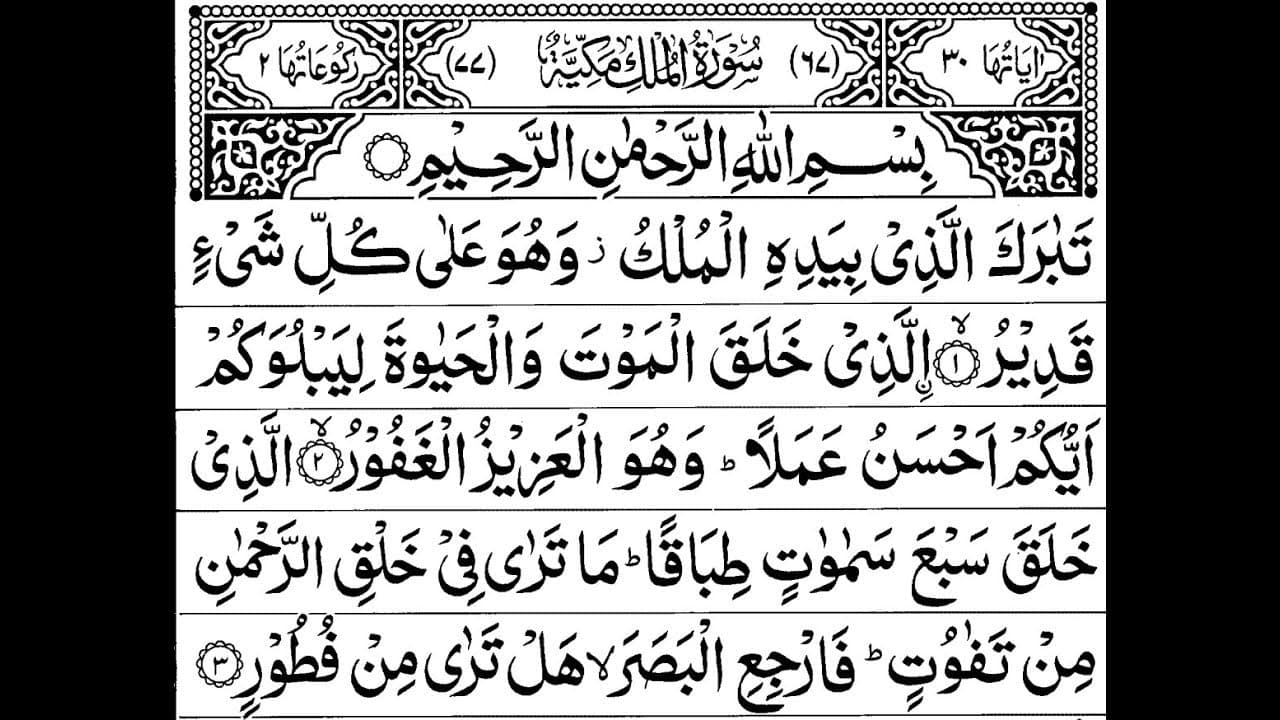 اٰيَاتُهَا ٣٠ (٦٧) سُوْرَةُ الْمُلْكِ مَكِّيَّةٌ (٧٧) رُكُوْعَاتُهَا ٢
بِسْمِ اللّٰهِ الرَّحْمٰنِ الرَّحِيْمِ
تَبٰرَكَ الَّذِىْ بِيَدِهِ الْمُلْكُ ز وَهُوَ عَلٰى كُلِّ شَىْءٍ
قَدِيْرُ ۙ﴿١﴾ نِ الَّذِىْ خَلَقَ الْمَوْتَ وَالْحَيٰوةَ لِيَبْلُوَكُمْ
اَيُّكُمْ اَحْسَنُ عَمَلًا ؕ وَهُوَ الْعَزِيْزُ الْغَفُوْرُ ۙ﴿٢﴾ الَّذِىْ
خَلَقَ سَبْعَ سَمٰوٰتٍ طِبَاقًا ؕ مَا تَرٰى فِىْ خَلْقِ الرَّحْمٰنِ
مِنْ تَفٰوُتٍ ؕ فَارْجِعِ الْبَصَرَ ۙ هَلْ تَرٰى مِنْ فُطُوْرٍ ﴿٣﴾